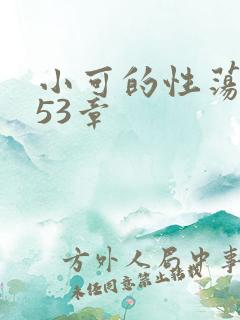 小可的性荡
53章
方外人局中事
未经同意禁止转载